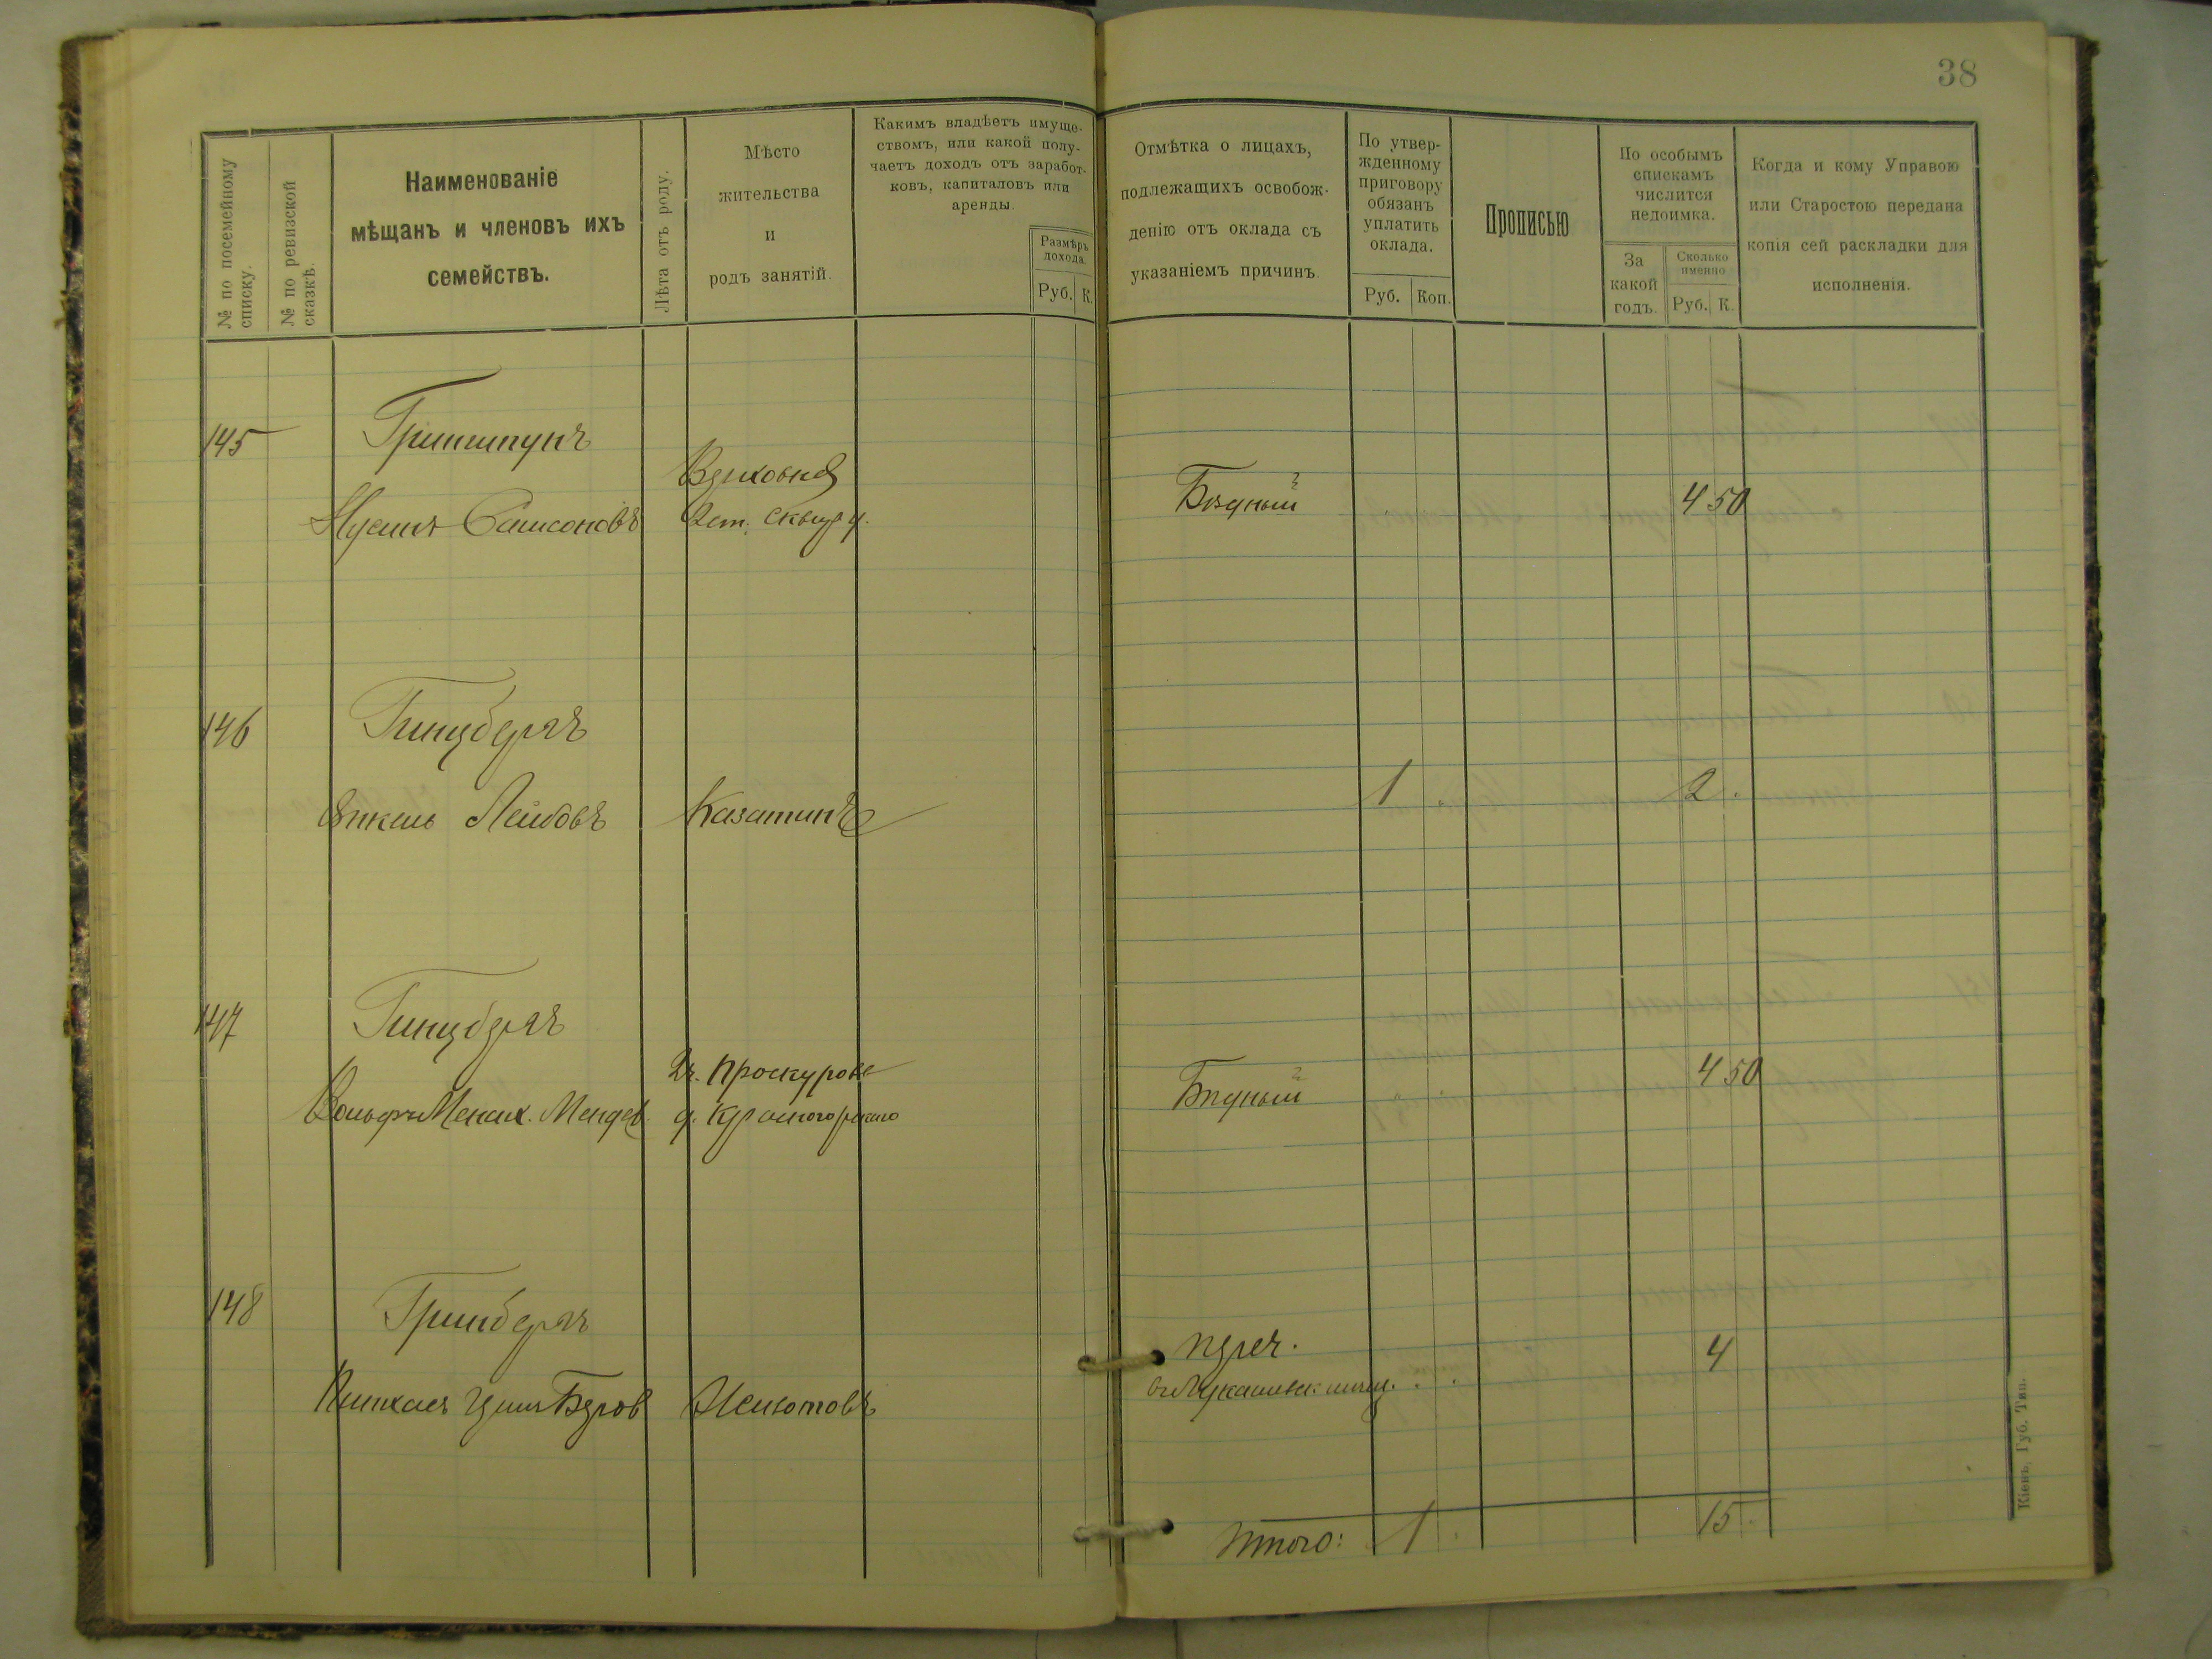 38
№ по посемейному списку.
№ по ревизской сказкѣ.
Наименованіе
мѣщанъ и членовъ ихъ
семействъ.
Лѣта отъ роду.
Мѣсто
жительства
и
родъ занятій.
Какимъ владѣетъ имуще-
ствомъ, или какой полу-
чаетъ доходъ отъ заработ-
ковъ, капиталовъ или
аренды.
Размѣръ
дохода.
Руб. К.
Отмѣтка о лицахъ,
подлежащихъ освобож-
денію отъ оклада съ
указаніемъ причинъ.
По утвер-
жденному
приговору
обязанъ
уплатить
оклада.
Руб. Коп.
Прописью
По особымъ
спискамъ
числится
недоимка.
За
какой
годъ.
Сколько
именно
Руб. К.
Когда и кому Управою
или Старостою передана
копія сей раскладки для
исполненія.
145
Гринштунъ
Самсоновъ
Бѣдный
4 50
146
Гинцбергъ
Янкель Лейбовъ
Казатинъ
1
2
147
Гинцбергъ
Вольфъ Менах. Мендел.
Проскуровъ
Бѣдный
4 50
148
Гринбергъ
Пинхасъ Гершъ Беров
переч.
4
Итого: 1 15
Кіевъ, Губ. Тип.